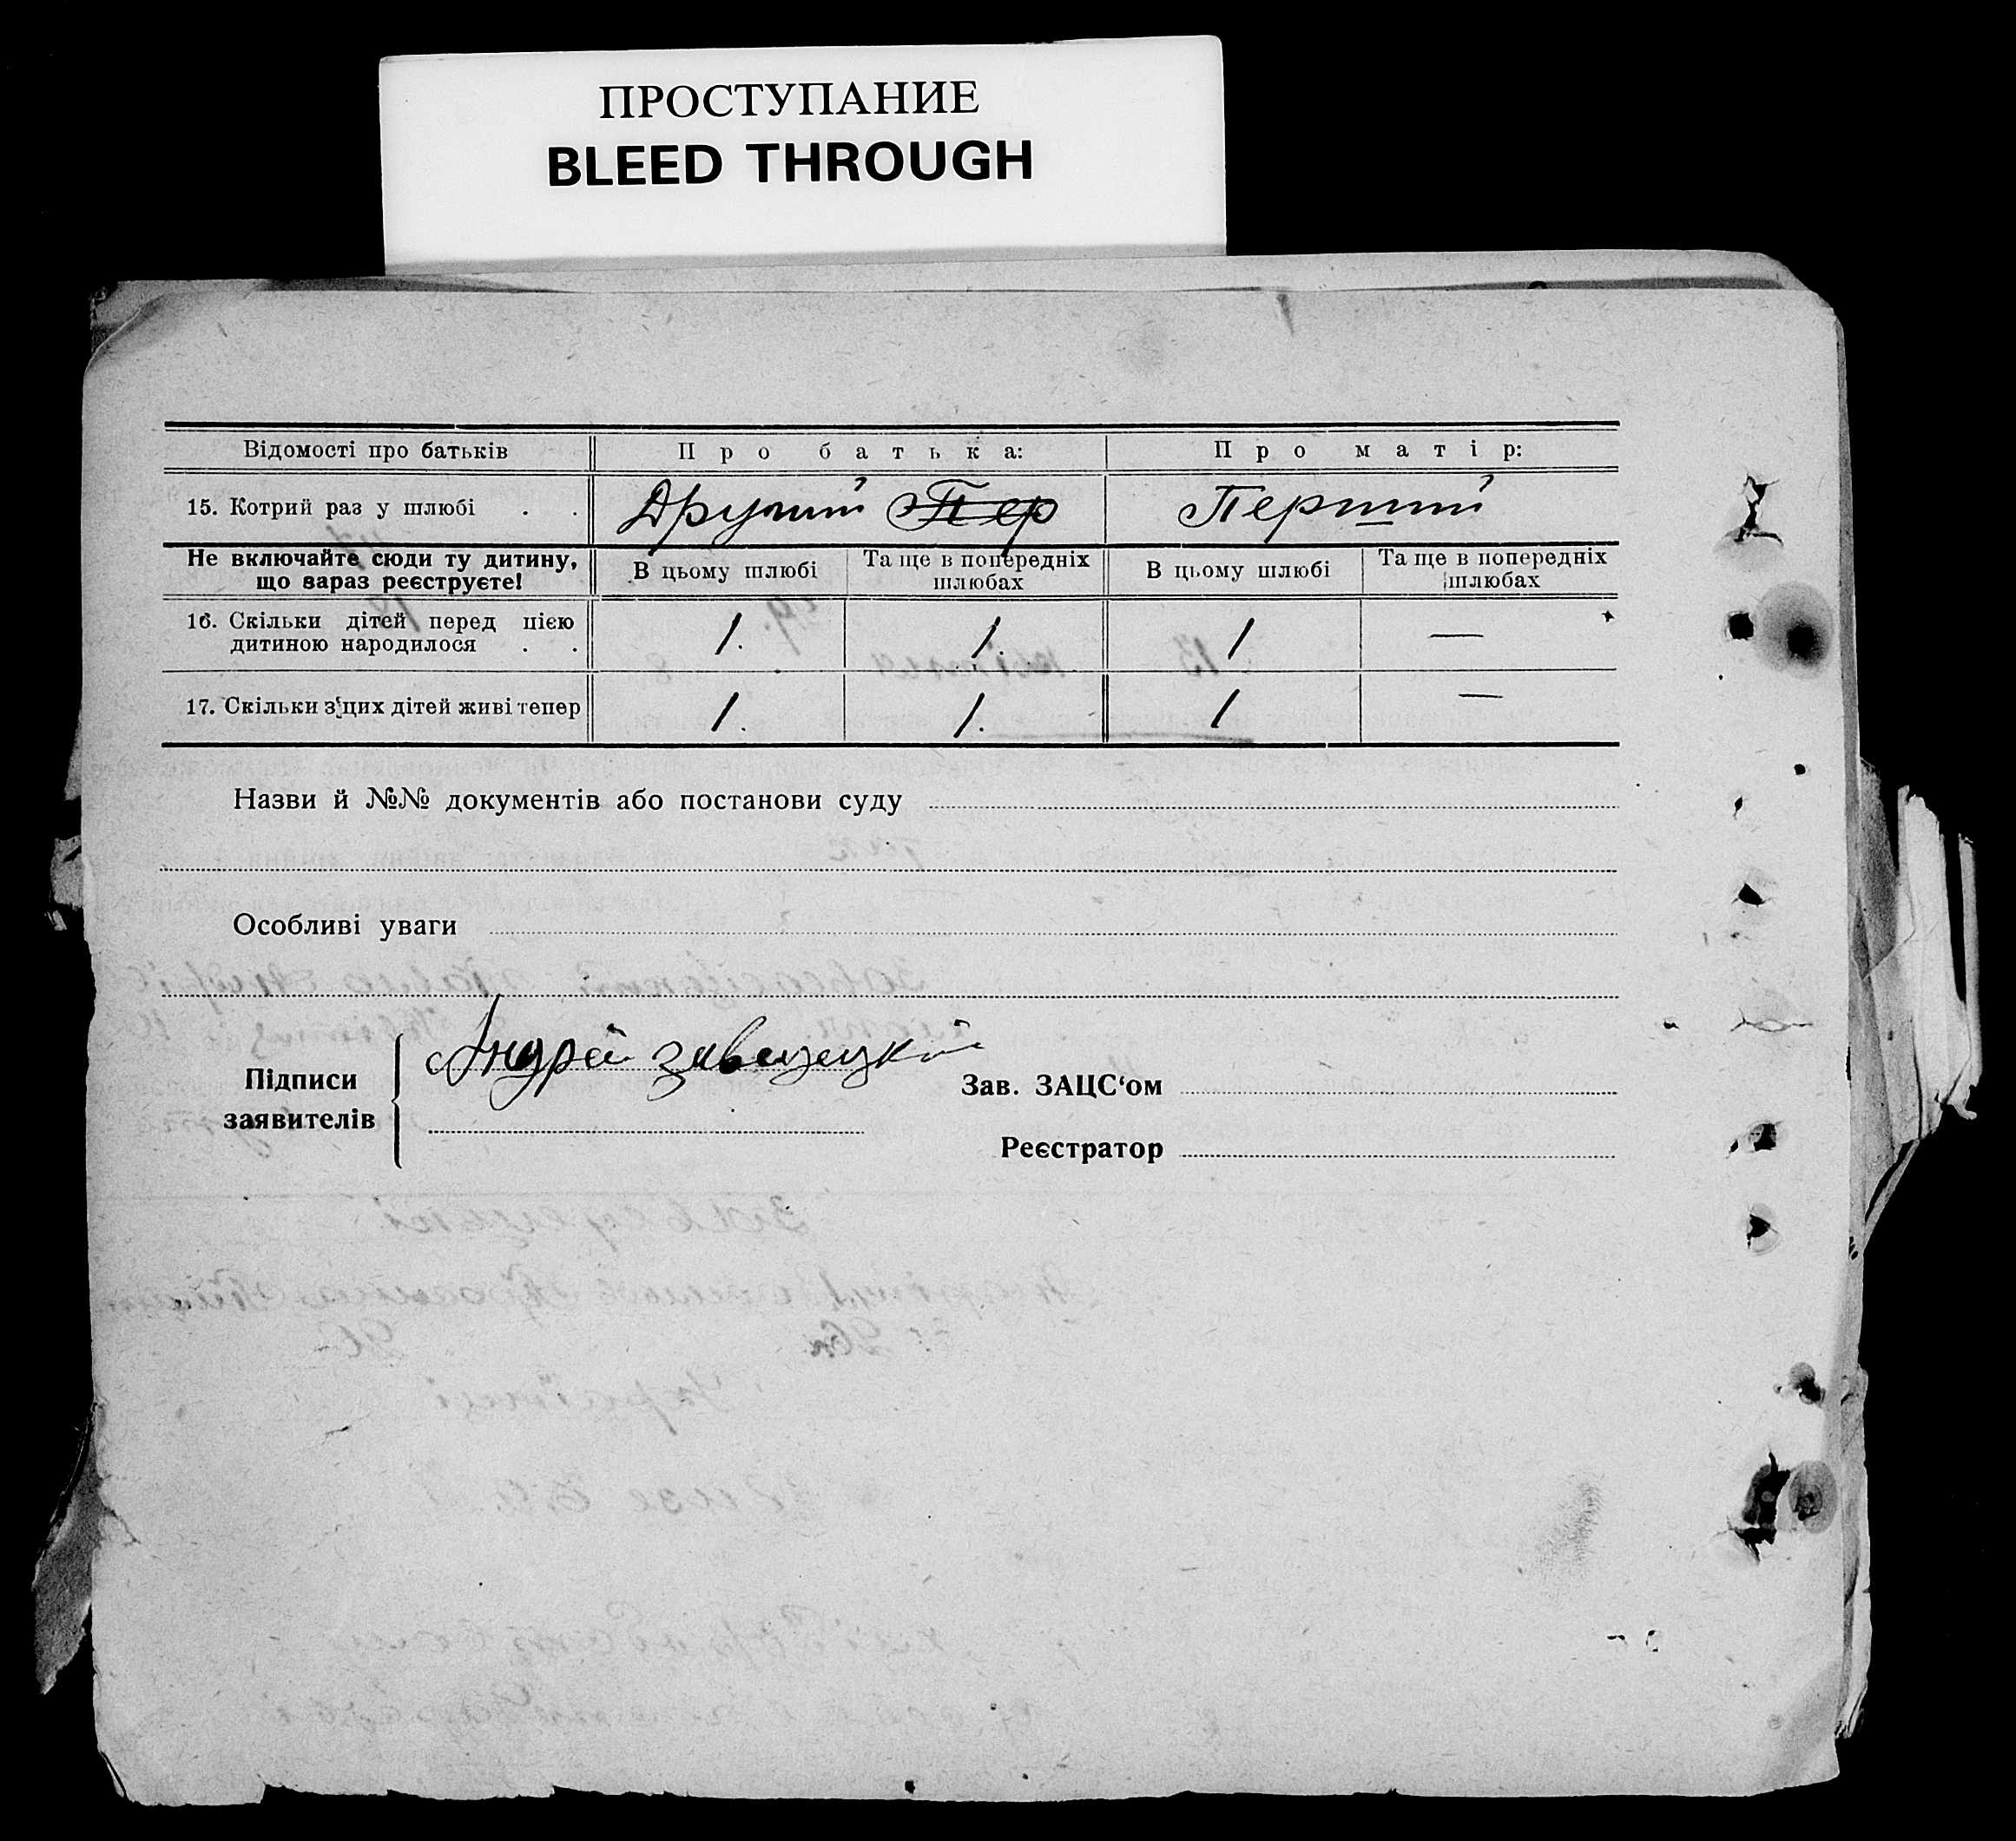 ПРОСТУПАНИЕ
BLEED THROUGH
Відомості про батьків
Про батька:
Про матір:
15. Котрий раз у шлюбі . .
Другий Пер
Перший
Не включайте сюди ту дитину,
що вараз реєструєте!
В цьому шлюбі
Та ще в попередніх
шлюбах
В цьому шлюбі
Та ще в попередніх
шлюбах
16. Скільки дітей перед цією
дитиною народилося . .
1.
1.
1
—
17. Скільки з цих дітей живі тепер
1.
1.
1
—
Назви й №№ документів або постанови суду
Особливі уваги
Підписи
заявителів
Андрей
Зав. ЗАЦС‘ом
Реєстратор